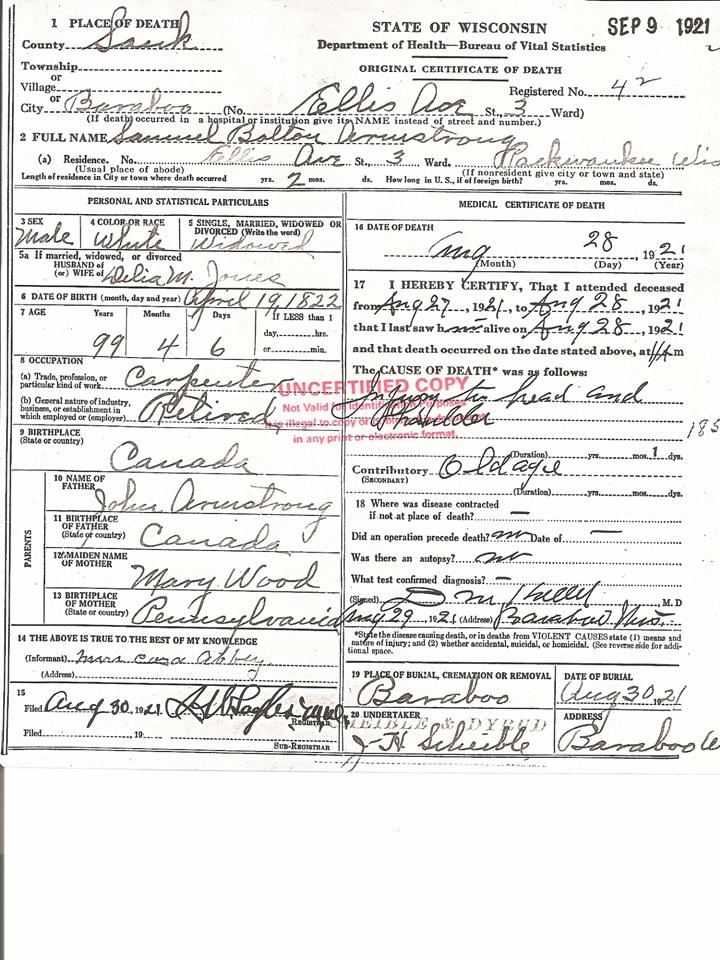 1 PLACE OF DEATH
County Sauk
STATE OF WISCONSIN
SEP 9 1921
Department of Health—Bureau of Vital Statistics
ORIGINAL CERTIFICATE OF DEATH
Township
or
Village
Registered No. 42
or
City Baraboo (No. Ellis Ave St., 3 Ward)
(If death occurred in a hospital or institution give its NAME instead of street and number.)
2 FULL NAME Samuel Bolton Armstrong
(a) Residence. No. Ellis Ave St., 3 Ward. Packwaukee Wis
(Usual place of abode) (If nonresident give city or town and state)
Length of residence in City or town where death occurred yrs. 2 mos. ds. How long in U. S., if of foreign birth? yrs. mos. ds.
PERSONAL AND STATISTICAL PARTICULARS
3 SEX Male
4 COLOR OR RACE White
5 SINGLE, MARRIED, WIDOWED OR DIVORCED (Write the word) Widowed
5a If married, widowed, or divorced
HUSBAND of
(or) WIFE of Delia M. Jones
6 DATE OF BIRTH (month, day and year) April 19, 1822
7 AGE Years Months Days If LESS than 1
day, hrs.
99 4 6 or min.
8 OCCUPATION
(a) Trade, profession, or particular kind of work Carpenter
(b) General nature of industry, business, or establishment in which employed or (employer) Retired
9 BIRTHPLACE
(State or country)
Canada
PARENTS
10 NAME OF FATHER
John Armstrong
11 BIRTHPLACE OF FATHER
(State or country) Canada
12 MAIDEN NAME OF MOTHER
Mary Wood
13 BIRTHPLACE OF MOTHER
(State or country) Pennsylvania
14 THE ABOVE IS TRUE TO THE BEST OF MY KNOWLEDGE
(Informant) Mrs Cora Abbey
(Address)
15
Filed Aug 30, 1921
REGISTRAR
Filed 19
SUB-REGISTRAR
MEDICAL CERTIFICATE OF DEATH
16 DATE OF DEATH
Aug 28, 1921
(Month) (Day) (Year)
17 I HEREBY CERTIFY, That I attended deceased
from Aug 27, 1921, to Aug 28, 1921
that I last saw h im alive on Aug 28, 1921
and that death occurred on the date stated above, at m
The CAUSE OF DEATH* was as follows:
Injury to head and
Shoulder
185
(Duration) yrs. mos. 1 dys.
Contributory Old age
(SECONDARY)
(Duration) yrs. mos. dys.
18 Where was disease contracted
if not at place of death? —
Did an operation precede death? no Date of —
Was there an autopsy? no
What test confirmed diagnosis? —
(Signed) D M Kelly M. D
Aug 29, 1921 (Address) Baraboo Wis.
*State the disease causing death, or in deaths from VIOLENT CAUSES state (1) means and
nature of injury; and (2) whether accidental, suicidal, or homicidal. (See reverse side for addi-
tional space.
19 PLACE OF BURIAL, CREMATION OR REMOVAL
Baraboo
DATE OF BURIAL
Aug 30, 1921
20 UNDERTAKER
SCHEIBLE & DYRUD
J H Scheible
ADDRESS
Baraboo W
UNCERTIFIED COPY
Not Valid for Identification Purposes
It is illegal to copy or
in any print or electronic format.